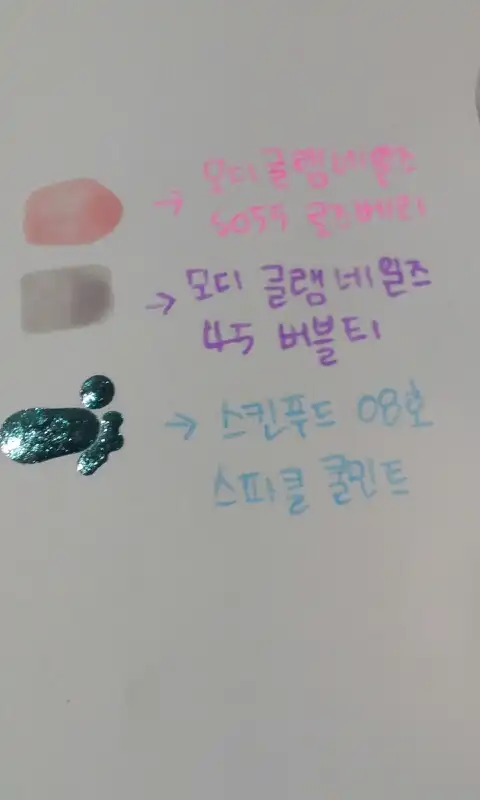 → 모디글램네일즈
SO55 로즈베리
→ 모디 글램네일즈
45 버블티
→ 스킨푸드 08호
스파클 쿨민트